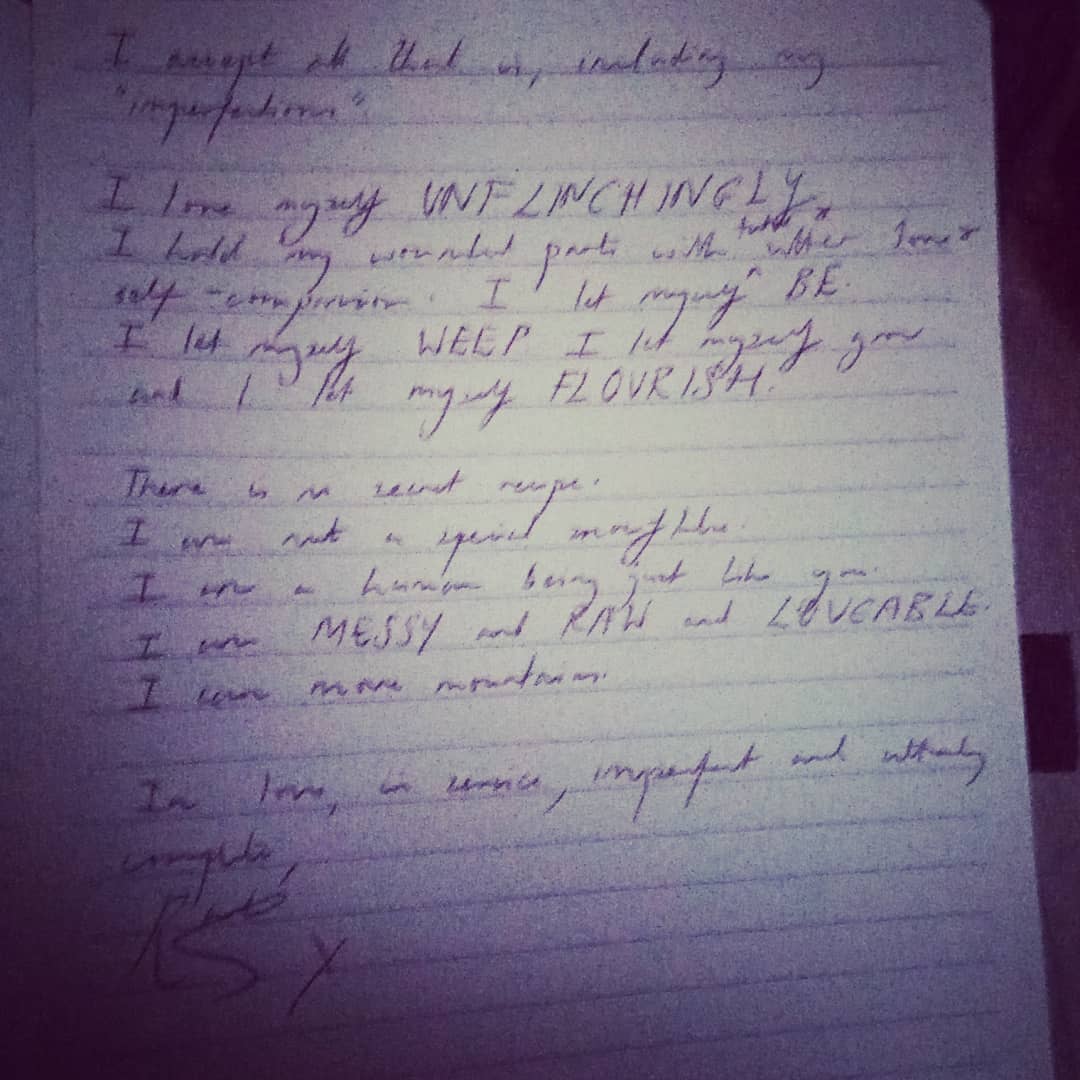 I accept all that is, including my
"imperfections".
I love myself UNFLINCHINGLY.
I hold my wounded parts with utter love &
self-compassion. I let myself BE.
I let myself WEEP I let myself grow
and I let myself FLOURISH.
There is no secret recipe.
I am not a special
I am a human being just like you.
I am MESSY and RAW and LOVEABLE.
I can move mountains.
In love, in service, imperfect and utterly
complete,
X